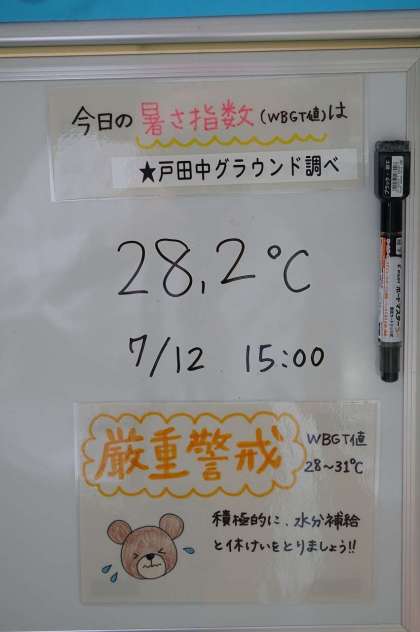 今日の暑さ指数(WBGT値)は
★戸田中グラウンド調べ
28.2℃
7/12 15:00
厳重警戒
WBGT値
28~31℃
積極的に、水分補給
と休けいをとりましょう!!
ボードマスター